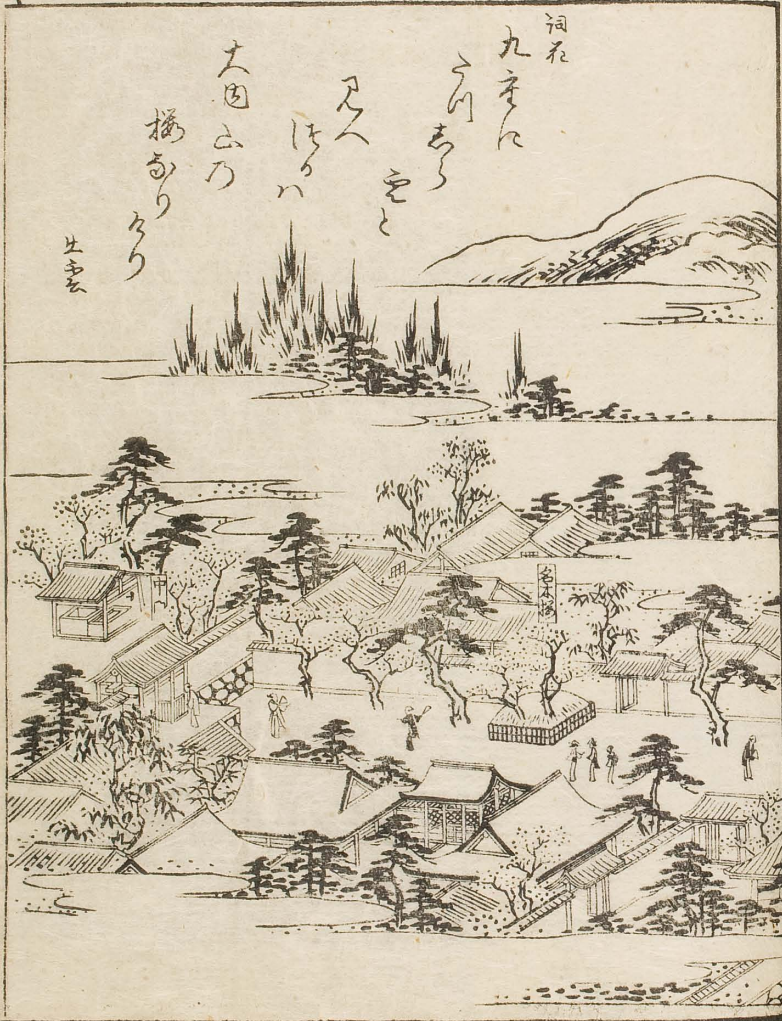 詞花
九重に
たつ
しら
雲と
見へ
つるハ
大内山乃
桜なり
けり
出雲
名木桜